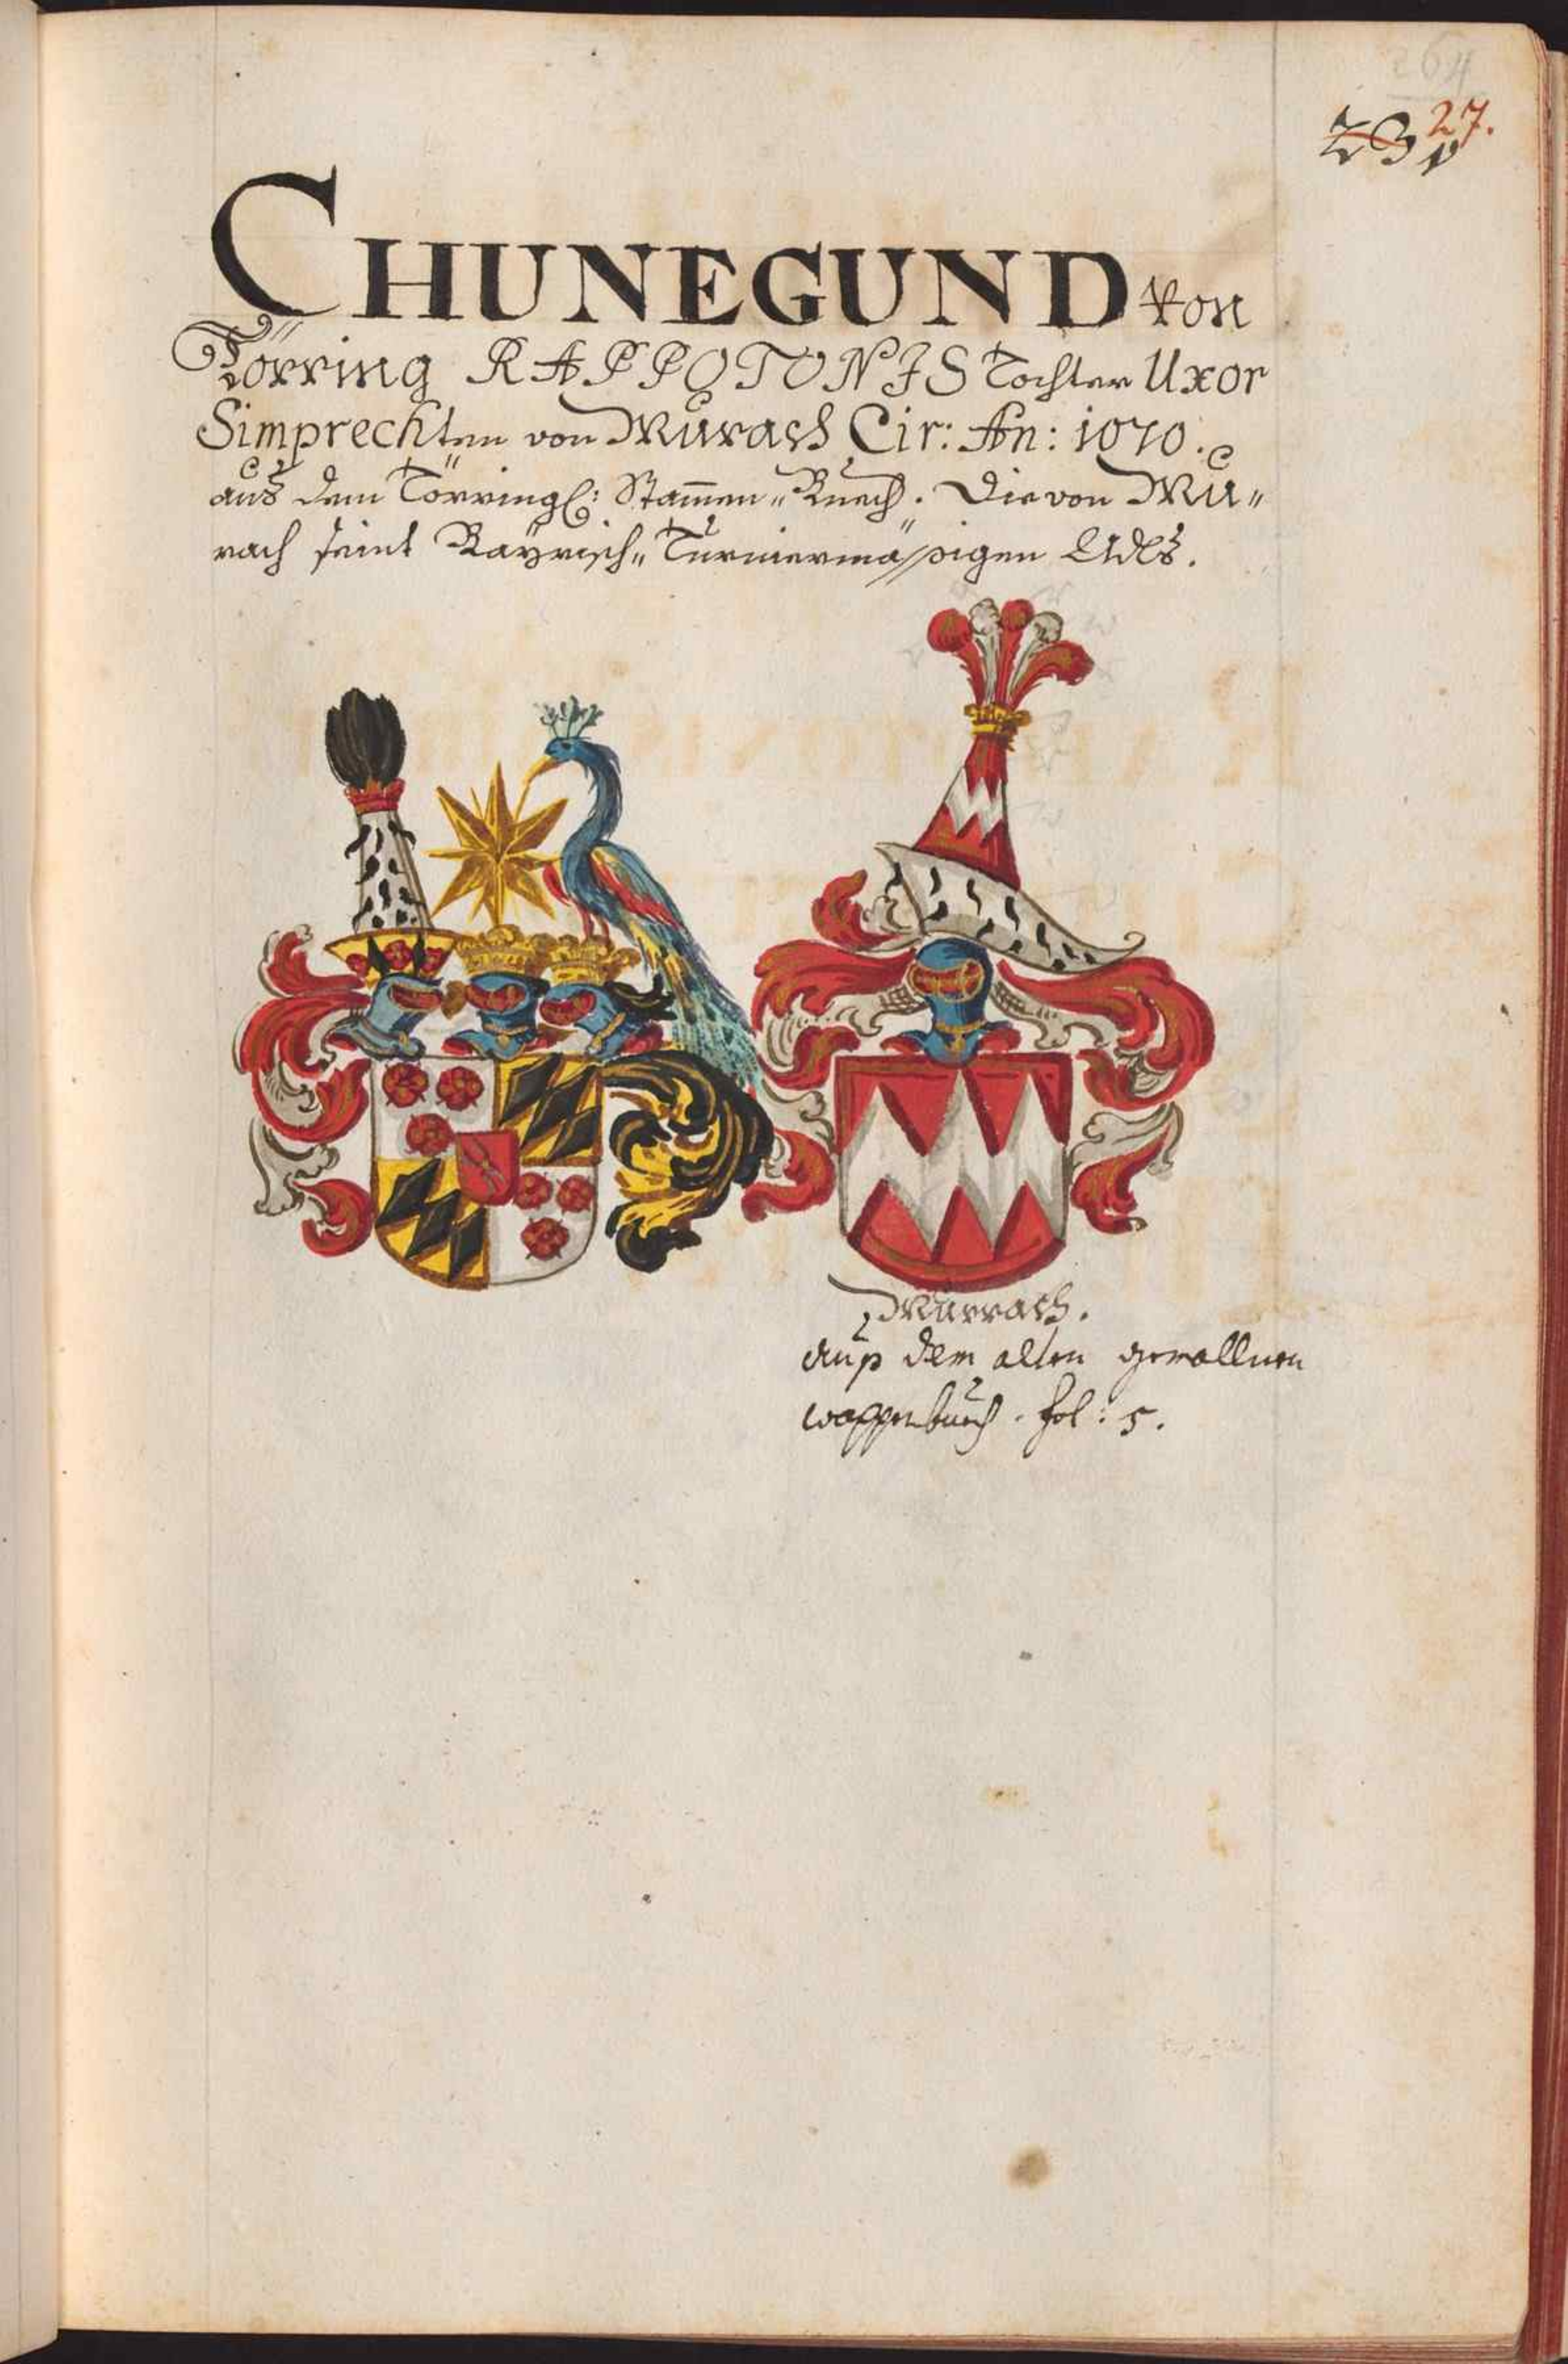 27.
CHUNEGUND von
Törring RAPPOTONIS Tochter Uxor
Simprechten von Murach Cir: An: 1070.
aus dem Törringl: Stam̅en„Buech. Die von Mu„
rach seint Bayrisch„Turniermäßigen Adls.
Murrach.
auß dem alten gemallnen
wappenbuech. fol: 5.